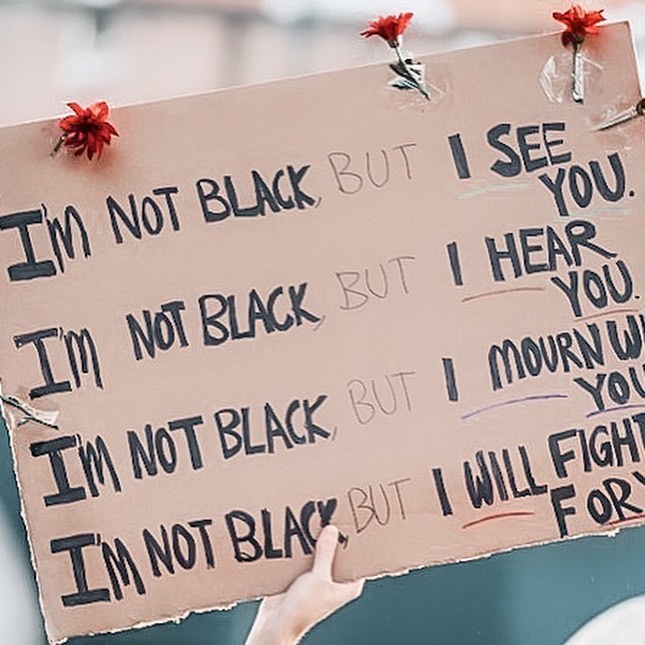 I'M NOT BLACK, BUT I SEE
YOU.
I'M NOT BLACK, BUT I HEAR
YOU.
I'M NOT BLACK, BUT I MOURN WI
YOU
I'M NOT BLACK, BUT I WILL FIGHT
FOR Y